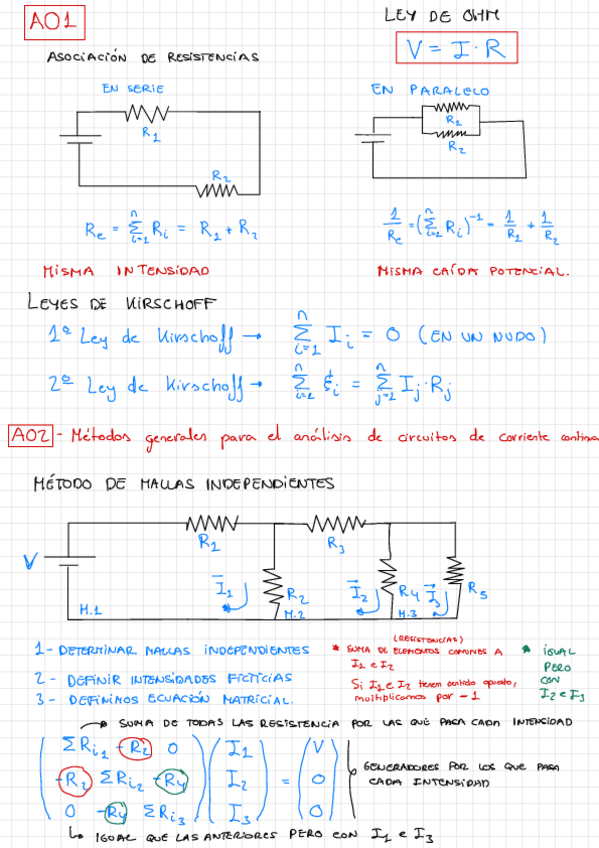 A01
LEY DE OHM
V = I · R
ASOCIACIÓN DE RESISTENCIAS
EN SERIE
EN PARALELO
R1
R2
R1
R2
Re = Σ(i=1..n) Ri = R1 + R2
1/Re = (Σ(i=1..n) Ri)^-1 = 1/R1 + 1/R2
MISMA INTENSIDAD
MISMA CAÍDA POTENCIAL.
LEYES DE KIRSCHOFF
1ª Ley de Kirschoff → Σ(i=1..n) Ii = 0 (EN UN NUDO)
2ª Ley de Kirschoff → Σ(i=1..n) ξi = Σ(j=1..n) Ij · Rj
A02 - Métodos generales para el análisis de circuitos de corriente continua
MÉTODO DE MALLAS INDEPENDIENTES
V
R1
R3
I1
R2
I2
R4
I3
R5
M.1
M.2
M.3
1 - DETERMINAR MALLAS INDEPENDIENTES
2 - DEFINIR INTENSIDADES FICTICIAS
3 - DEFINIMOS ECUACIÓN MATRICIAL.
(RESISTENCIAS)
* SUMA DE ELEMENTOS COMUNES A
I1 e I2
Si I1 e I2 tienen sentido opuesto,
multiplicamos por -1
* IGUAL
PERO
CON
I2 e I3
→ SUMA DE TODAS LAS RESISTENCIA POR LAS QUE PASA CADA INTENSIDAD
ΣRi1 -R2 0 I1 V
-R2 ΣRi2 -R4 I2 = 0
0 -R4 ΣRi3 I3 0
GENERADORES POR LOS QUE PASA
CADA INTENSIDAD
↳ IGUAL QUE LAS ANTERIORES PERO CON I1 e I3